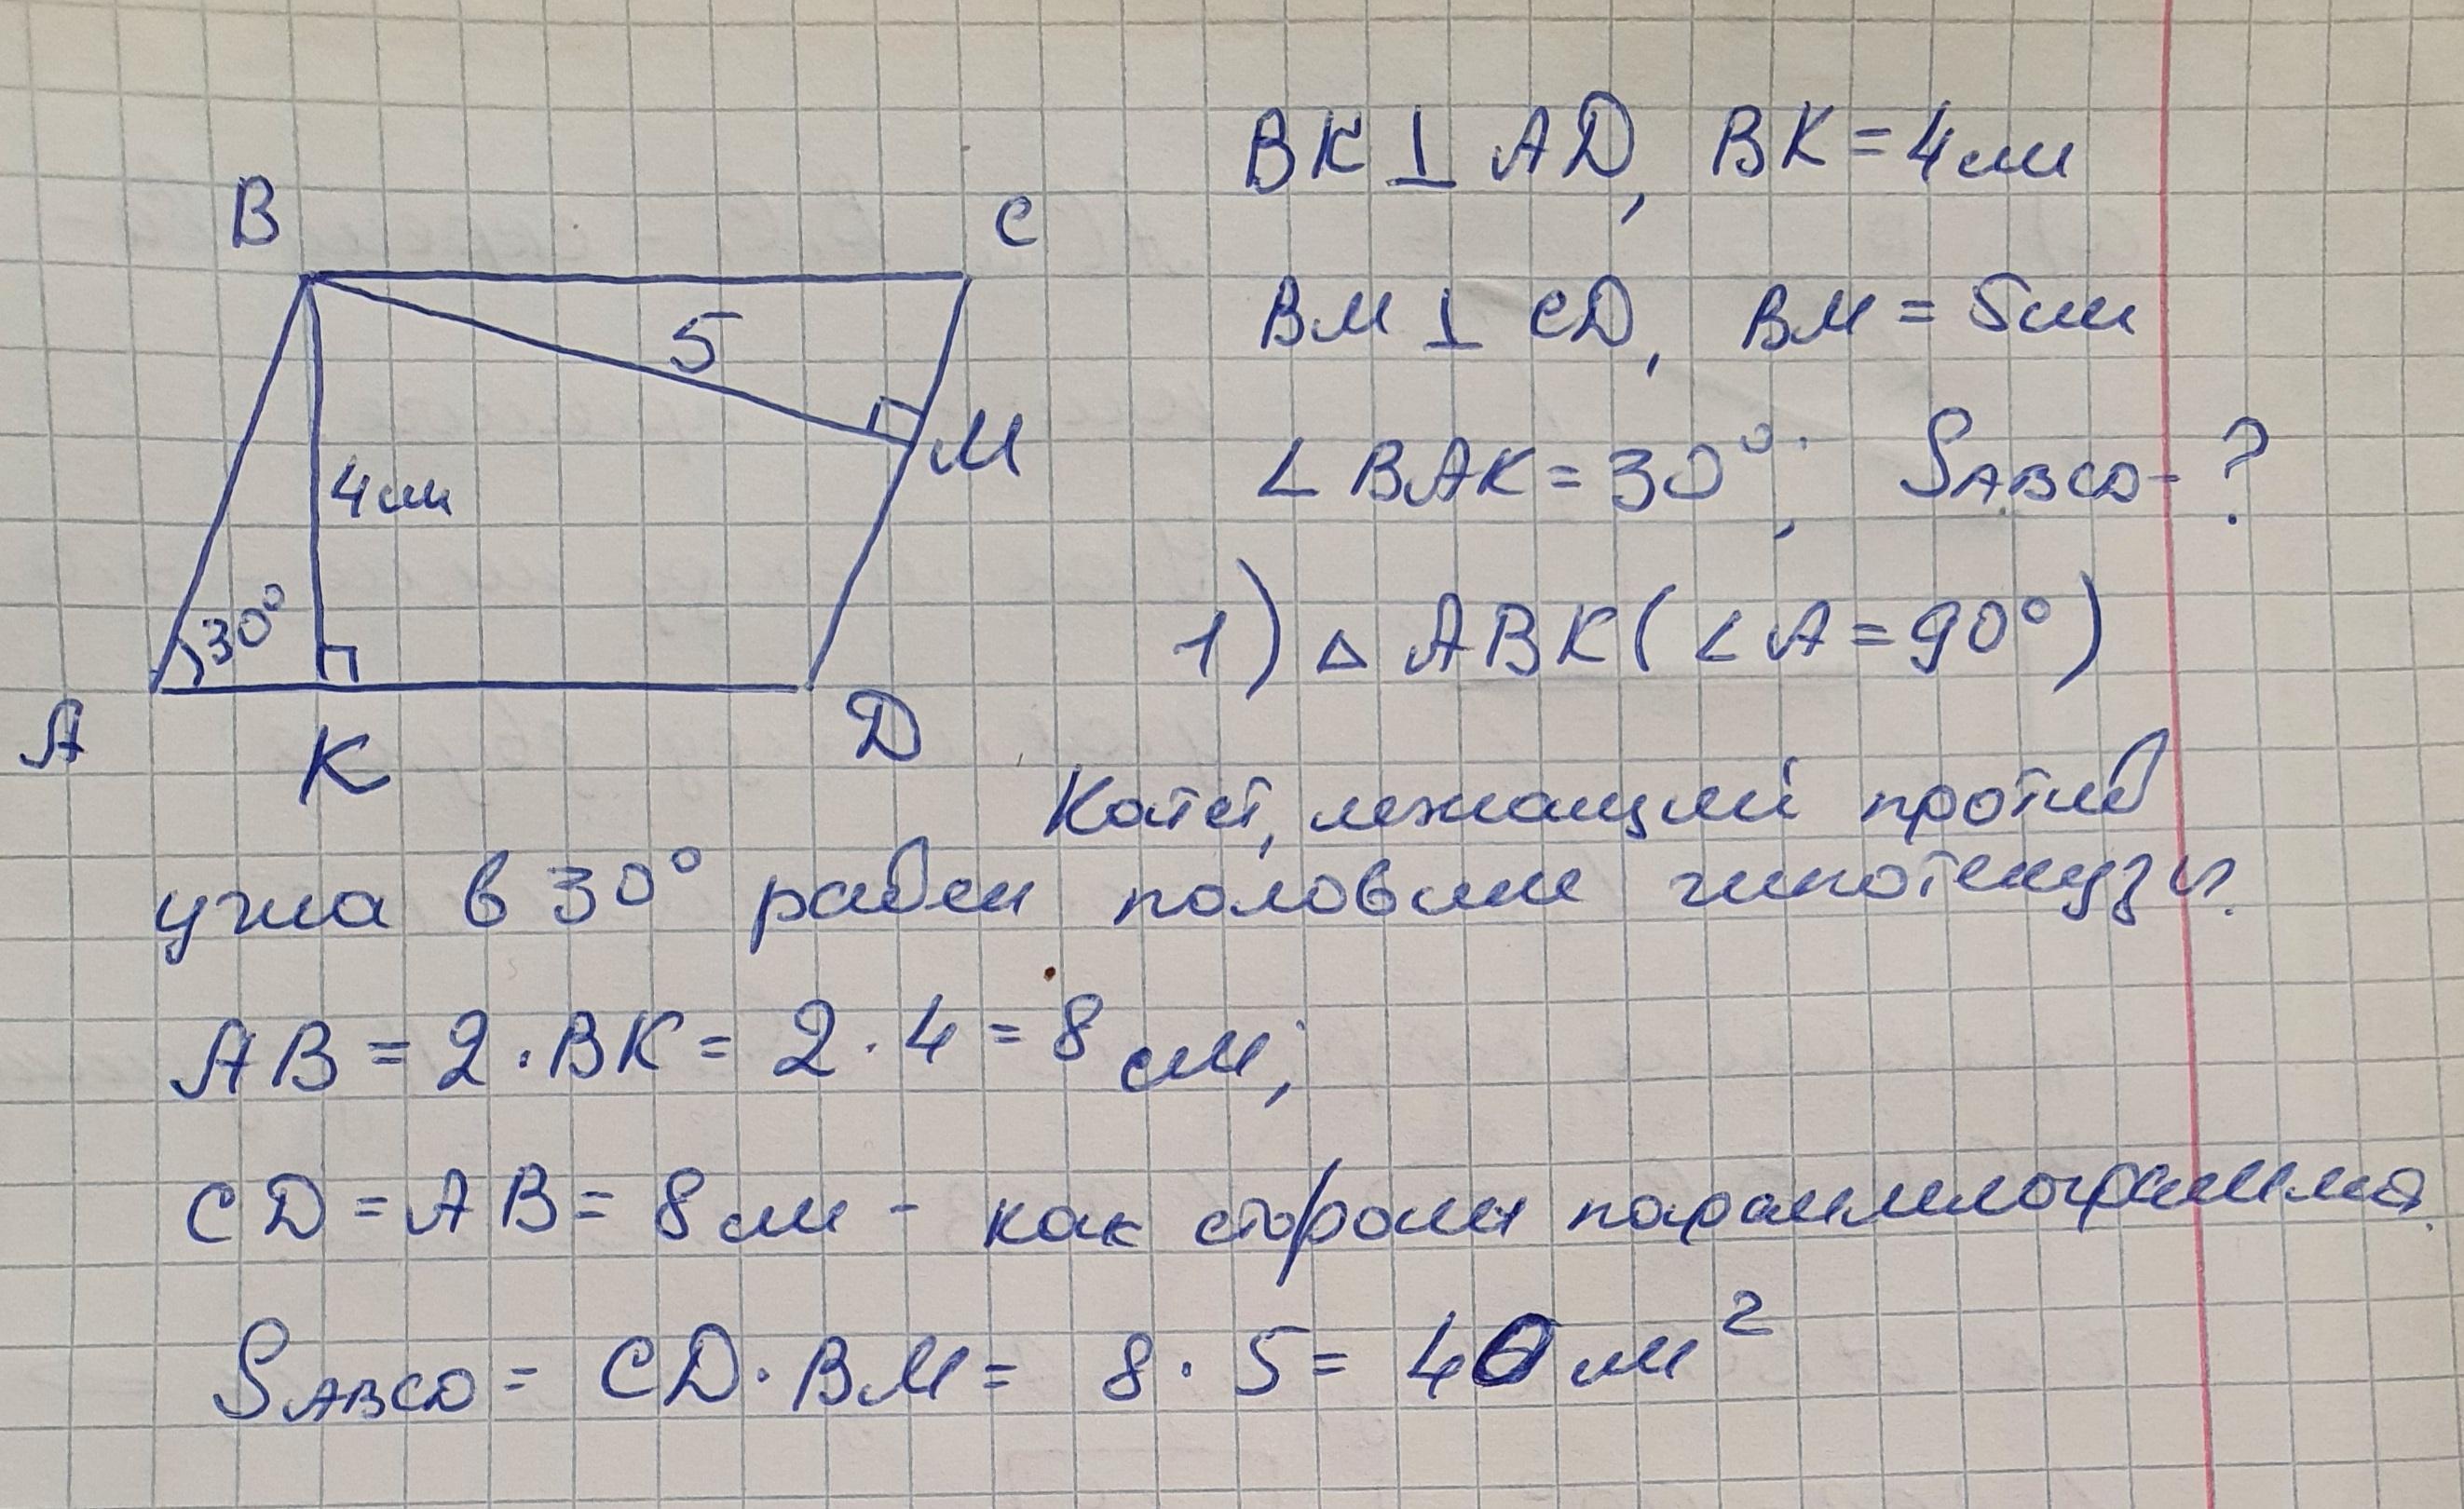 BK ⊥ AD, BK = 4 см
BM ⊥ CD, BM = 5 см
∠ BAK = 30°; S ABCD - ?
1) △ ABK (∠ A = 90°)
B
C
5
M
4 см
30°
A
K
D
Катет, лежащий против
угла в 30° равен половине гипотенузы.
AB = 2 · BK = 2 · 4 = 8 см;
CD = AB = 8 см - как стороны параллелограмма.
S ABCD = CD · BM = 8 · 5 = 40 см²